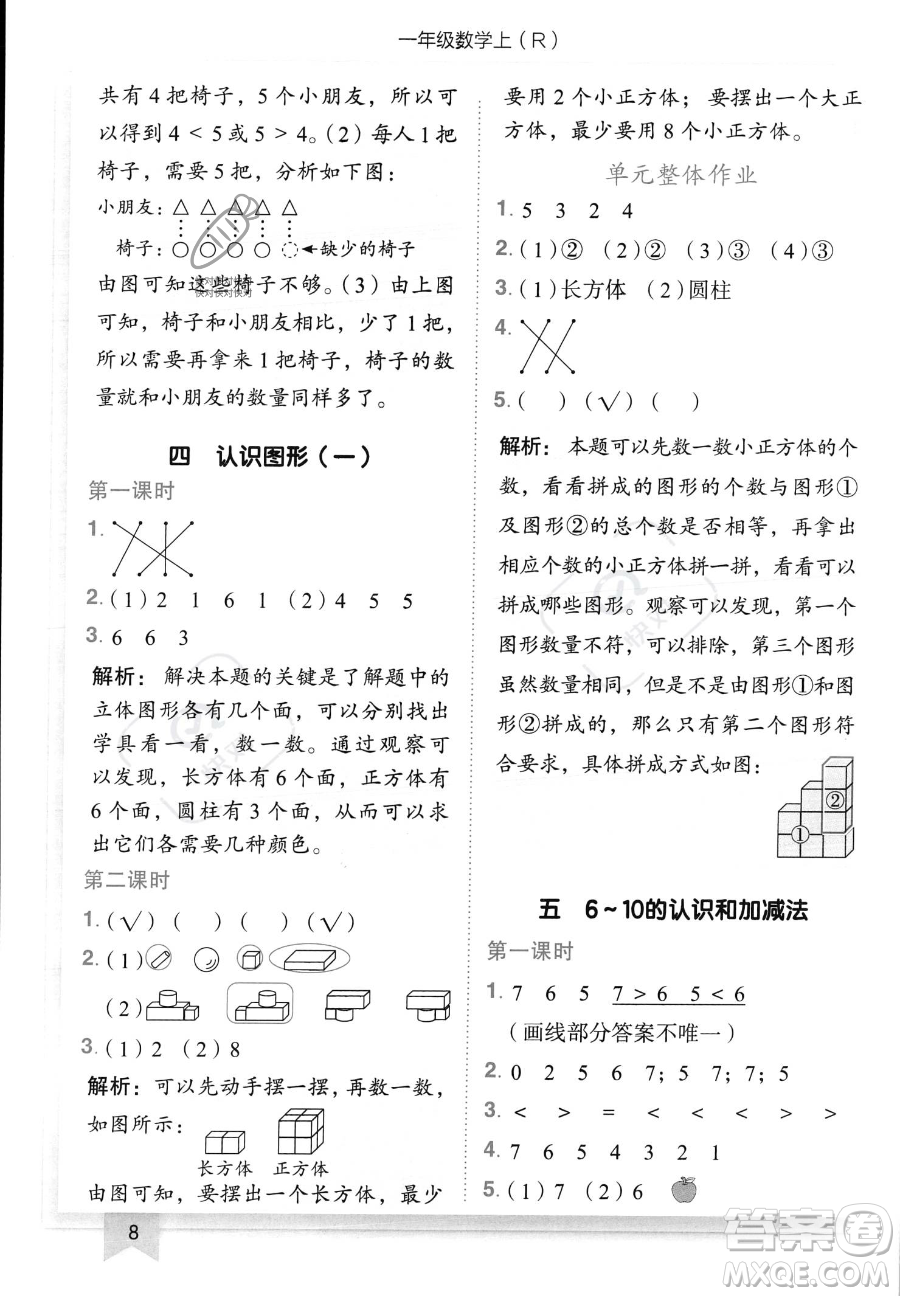 一年级数学上(R)
共有4把椅子，5个小朋友，所以可
以得到4 < 5或5 > 4。(2)每人1把
椅子，需要5把，分析如下图：
小朋友：△ △ △ △ △
椅子：○ ○ ○ ○ ○ ←缺少的椅子
由图可知这些椅子不够。(3)由上图
可知，椅子和小朋友相比，少了1把，
所以需要再拿来1把椅子，椅子的数
量就和小朋友的数量同样多了。
四 认识图形(一)
第一课时
1.
2. (1)2 1 6 1 (2)4 5 5
3. 6 6 3
解析：解决本题的关键是了解题中的
立体图形各有几个面，可以分别拿出
学具看一看，数一数。通过观察可
以发现，长方体有6个面，正方体有
6个面，圆柱有3个面，从而可以求
出它们各需要几种颜色。
第二课时
1. (√) ( ) ( ) (√)
2. (1)
(2)
3. (1)2 (2)8
解析：可以先动手摆一摆，再数一数，
如图所示：
长方体 正方体
由图可知，要摆出一个长方体，最少
要用2个小正方体；要摆出一个大正
方体，最少要用8个小正方体。
单元整体作业
1. 5 3 2 4
2. (1)② (2)② (3)③ (4)③
3. (1)长方体 (2)圆柱
4.
5. ( ) (√) ( )
解析：本题可以先数一数小正方体的个
数，看看拼成的图形的个数与图形①
及图形②的总个数是否相等，再拿出
相应个数的小正方体拼一拼，看看可以
拼成哪些图形。观察可以发现，第一个
图形数量不符，可以排除，第三个图形
虽然数量相同，但是不是由图形①和图
形②拼成的，那么只有第二个图形符
合要求，具体拼成方式如图：
②
①
五 6~10的认识和加减法
第一课时
1. 7 6 5 7 > 6 5 < 6
(画线部分答案不唯一)
2. 0 2 5 6 7; 5 7; 7 5
3. < > = < < > >
4. 7 6 5 4 3 2 1
5. (1)7 (2)6
8
答案圈
MXQE.COM